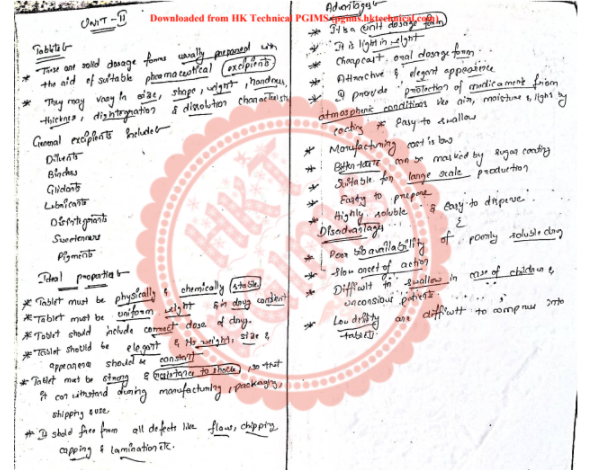 Downloaded from HK Technical PGIMS (pgims.hktechnical.com)
UNIT - II
Tablets
* These are solid dosage forms usually prepared with
the aid of suitable pharmaceutical excipients
* They may vary in size, shape, weight, hardness,
thickness, disintegration & dissolution characteristics
General excipients include
Diluents
Binders
Glidants
Lubricants
Disintegrants
Sweeteners
Pigments
Ideal properties
* Tablet must be physically & chemically stable
* Tablet must be uniform weight & in drug content
* Tablet should include correct dose of drug.
* Tablet should be elegant & its weight, size &
appearance should be constant
* Tablet must be strong & resistance to shock, so that
it can withstand during manufacturing, packaging,
shipping & use.
* It should free from all defects like flaws, chipping,
capping & lamination etc.
Advantages
* It is a unit dosage form
* It is light in weight
* Cheapest oral dosage form
* Attractive & elegant appearance
* It provide protection of medicament from
atmospheric conditions like air, moisture & light by
coating * Easy to swallow
* Manufacturing cost is low
* Bitter taste can be masked by sugar coating
* Suitable for large scale production
* Easy to prepare
* Highly soluble & easy to dispense.
Disadvantages
* Poor bioavailability of poorly soluble drug
* Slow onset of action
* Difficult to swallow in case of children &
unconscious patients
* Low density are difficult to compress into
tablets
HKT
PGIMS